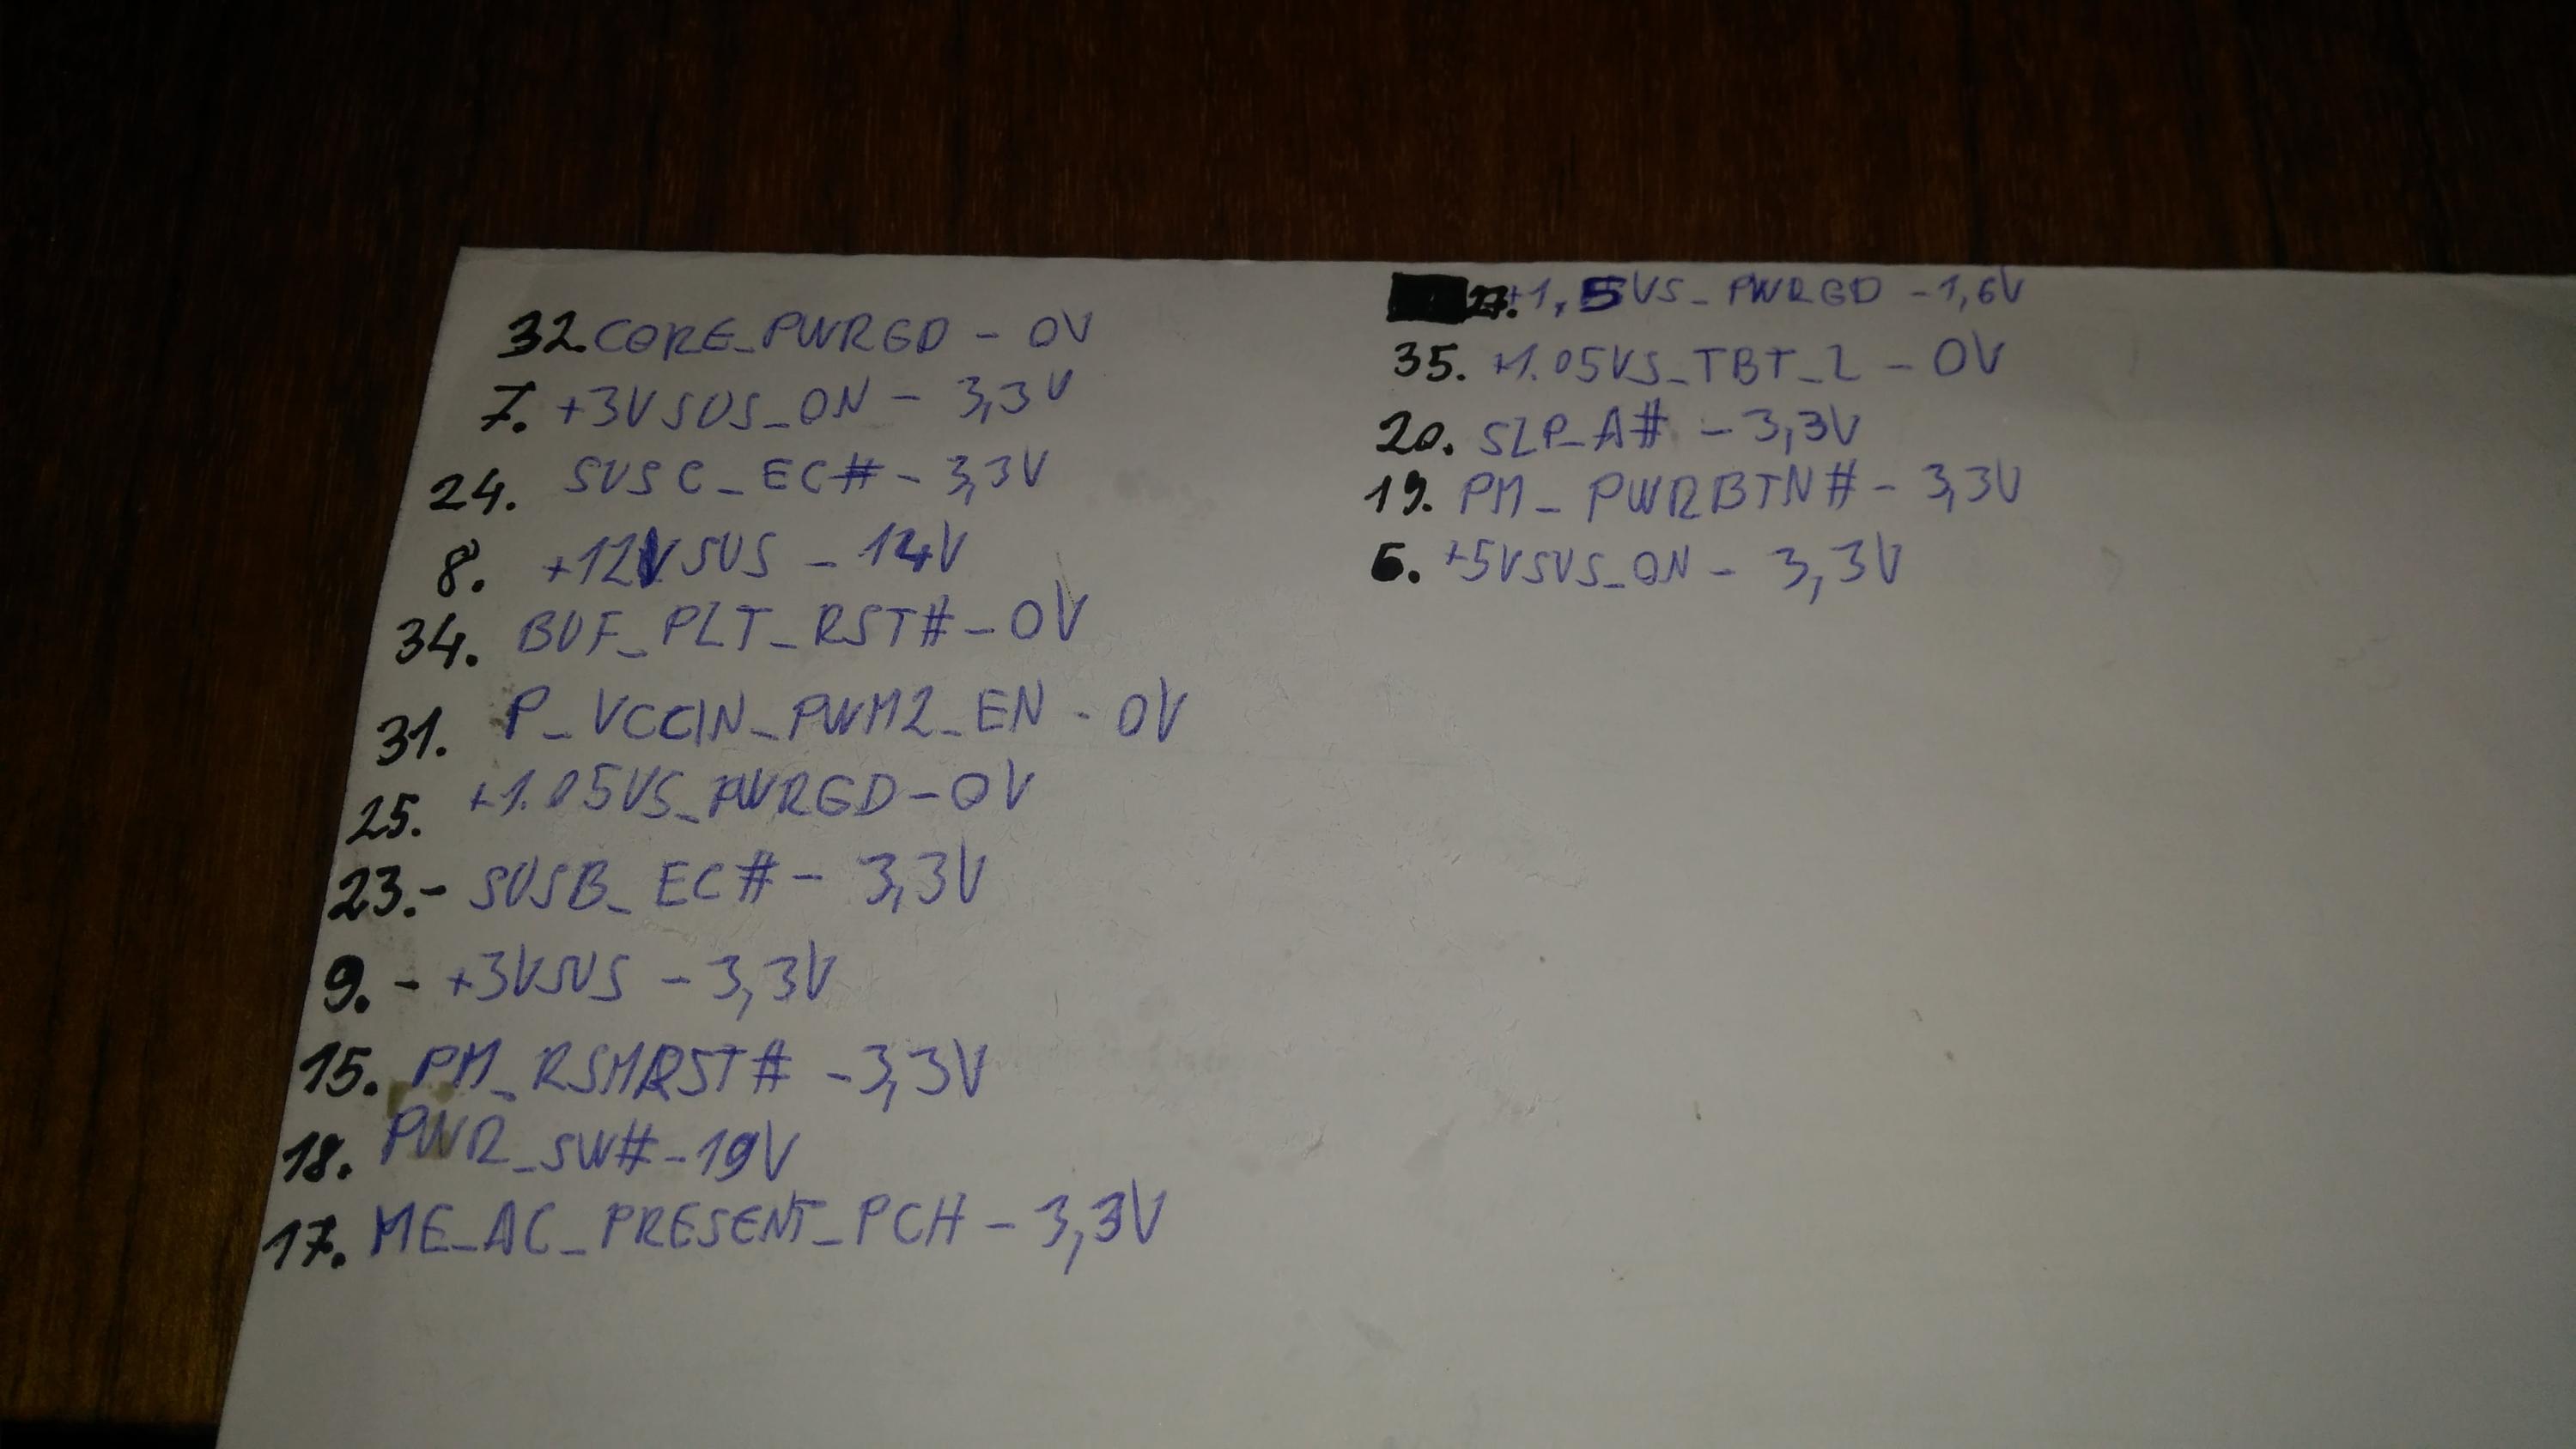 32. CORE_PWRGD - 0V
7. +3VSUS_ON - 3,3V
24. SUSC_EC# - 3,3V
8. +12VSUS - 14V
34. BUF_PLT_RST# - 0V
31. P_VCCIN_PWM2_EN - 0V
25. +1.05VS_PWRGD - 0V
23. - SUSB_EC# - 3,3V
9. - +3VSUS - 3,3V
15. PM_RSMRST# - 3,3V
18. PWR_SW# - 19V
17. ME_AC_PRESENT_PCH - 3,3V
27. +1,5VS_PWRGD - 1,6V
35. +1.05VS_TBT_2 - 0V
20. SLP_A# - 3,3V
19. PM_PWRBTN# - 3,3V
6. +5VSUS_ON - 3,3V